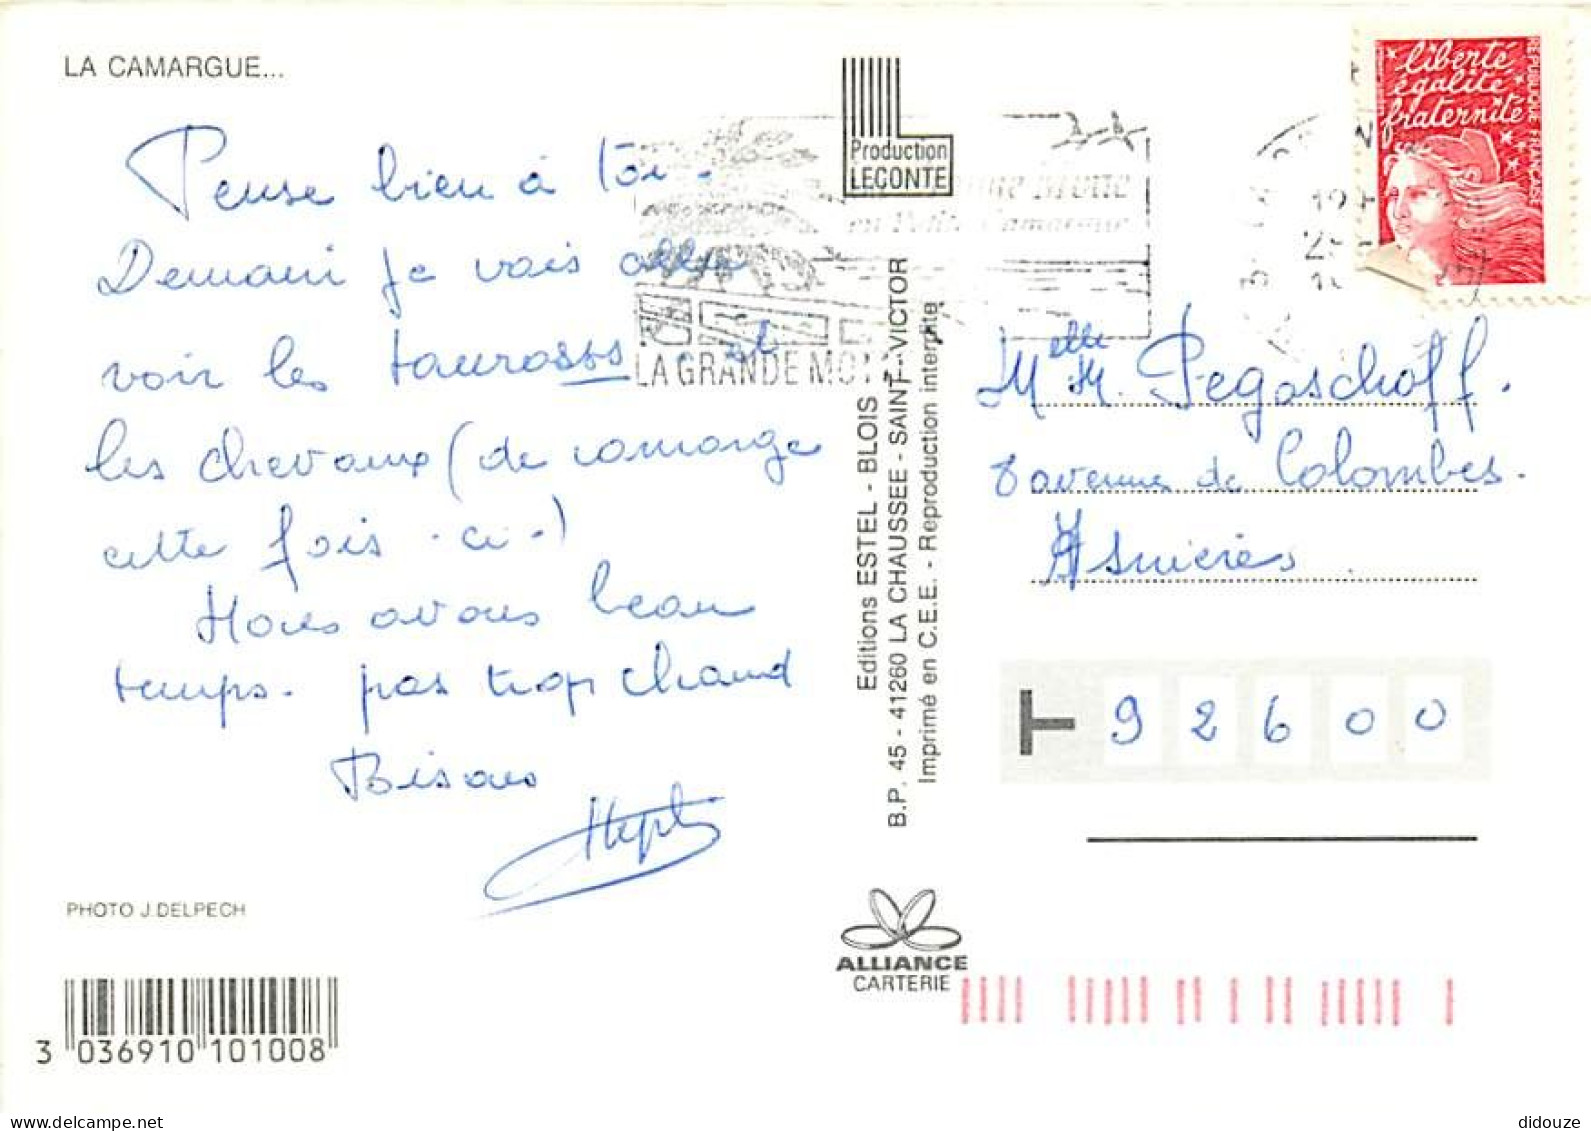 LA CAMARGUE...
Pense bien à toi.
Demain je vais aller
voir les taurosss et
les chevaux (de camargue
cette fois-ci-)
Nous avons beau
temps. pas trop chaud
Bisous
PHOTO J.DELPECH
3 036910 101008
Production
LECONTE
LA GRANDE MOT
Editions ESTEL - BLOIS
B.P. 45 - 41260 LA CHAUSSEE - SAINT-VICTOR
Imprimé en C.E.E. - Reproduction interdite
ALLIANCE
CARTERIE
liberté
égalité
fraternité
REPUBLIQUE FRANÇAISE
Melle M. Pegaschoff.
8 avenue de Colombes.
Asnières.
92600
didouze